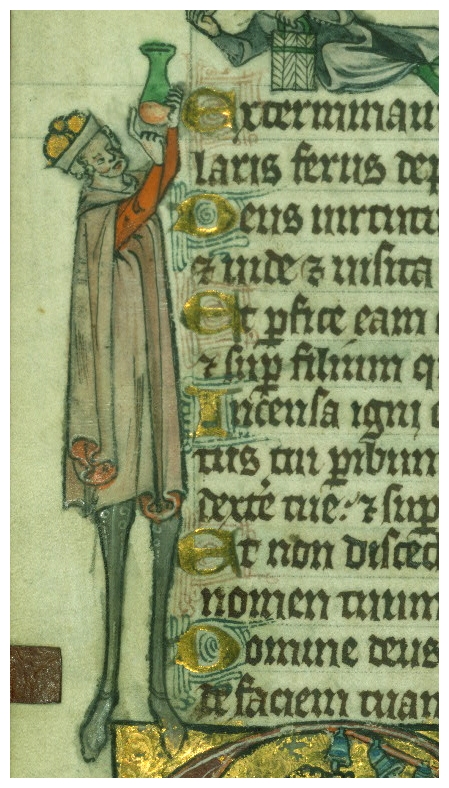 Exterminau
laris ferus dep
Deus uirtutu
⁊ uide ⁊ uisita
Et ꝑfice eam
⁊ suꝑ filium q
Incensa igni
tus tui ꝑibun
dexte tue: ⁊ suꝑ
Et non disced
nomen tuum
Domine deus
de faciem tuam